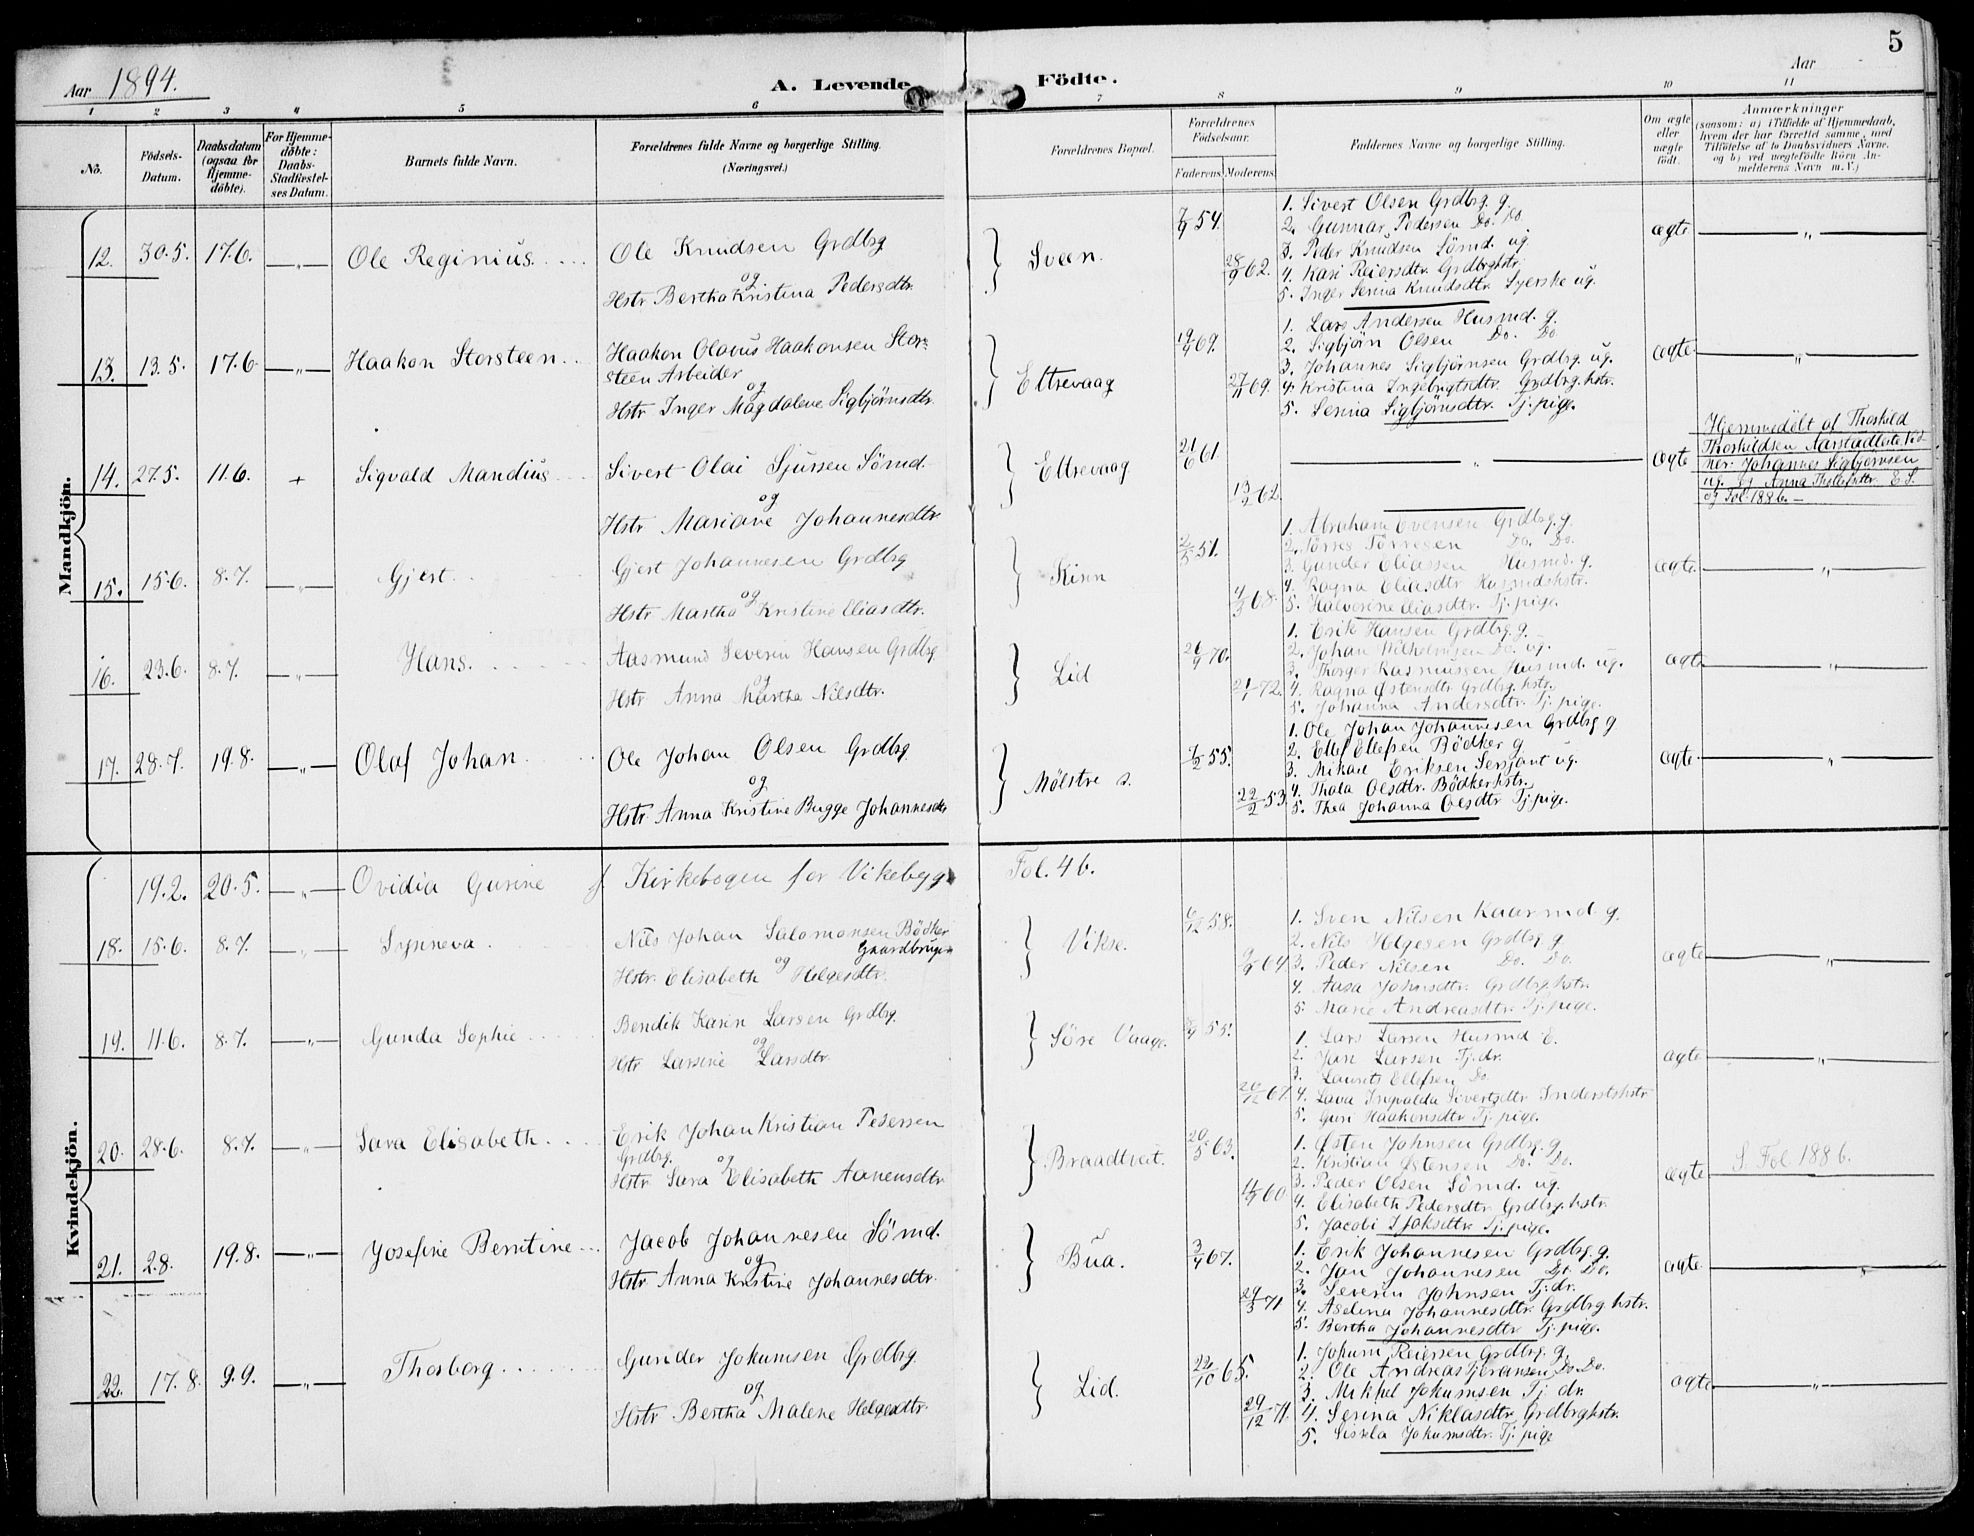 5
Aar 1894.
A. Levende Födte.
Aar
1 2 3 4 5 6 7 8 9 10 11
No.
Födsels-Datum.
Daabsdatum (ogsaa for Hjemme-döbte).
For Hjemme-döbte: Daabs-Stadfæstel-ses Datum.
Barnets fulde Navn.
Forældrenes fulde Navne og borgerlige Stilling. (Næringsvei.)
Forældrenes Bopæl.
Forældrenes Födselsaar.
Faderens. Moderens.
Faddernes Navne og borgerlige Stilling.
Om ægte eller uægte födt.
Anmærkninger
(saasom: a) i Tilfælde af Hjemmedaab, hvem der har forrettet samme, med Tilföielse af to Daabsvidners Navne, og b) ved uægtefödte Börn An-melderens Navn m. V.)
Mandkjön.
12. 30.5. 17.6. —„— Ole Reginius Ole Knudsen Grdbrg
og
Hstr Bertha Kristina Pedersdtr.
Sveen. 7/9 54. 28/9 62.
1. Sivert Olsen Grdbrg. g.
2. Gunnar Pedersen Do. Do.
3. Peder Knudsen Sömd. ug.
4. Kari Reiersdtr. Grdbrghstr.
5. Inger Serina Knudsdtr. Syerske ug.
ægte —„—
13. 13.5. 17.6 —„— Haakon Storsteen Haakon Olavus Haakonsen Stor-
steen Arbeider
og
Hstr Inger Magdalene Sigbjørnsdtr.
Eltrevaag 19/9 69. 27/11 69.
1. Lars Andersen Husmd. g.
2. Sigbjörn Olsen Do. Do
3. Johannes Sigbjörnsen Grdbrg. ug.
4. Kristina Ingebrigtsdtr. Grdbrg.hstr.
5. Serina Sigbjörnsdtr. Tj. pige.
ægte —„—
14. 27.5. 11.6. + Sigvald Mandius Sivert Olai Sjursen Sömd.
og
Hstr Mariane Johannesdtr
Eltrevaag 21/6 61. 13/2 62.
—„—
ægte
Hjemmedöbt af Thorkild
Thorkildsen
ner: Johannes Sigbjörnsen
ug. og Anna
og Fol 1886.
15. 15.6. 8.7. —„— Gjert. Gjert Johannesen Grdbrg
og
Hstr Martha Kristine Eliasdtr.
Kinn 2/5 51. 4/3 68.
1. Abraham Evensen Grdbrg. g.
2. Törres Törresen Do. Do.
3. Gunder Eliassen Husmd. g.
4. Ragna Eliasdtr Husmdshstr.
5. Halverine Eliasdtr. Tj. pige.
ægte. —„—
16. 23.6. 8.7. —„— Hans. Aasmund Severin Hansen Grdbrg
og
Hstr Anna Martha Nilsdtr.
Lid 26/9 70. 21/1 72.
1. Erik Hansen Grdbrg. g.
2. Johan Wilhelmsen Do. ug.
3. Thorger Rasmussen Husmd. ug.
4. Ragna Østensdtr Grdbrg.hstr.
5. Johanna Andersdtr. Tj. pige.
ægte —„—
17. 28.7. 19.8. —„— Olaf Johan. Ole Johan Olsen Grdbrg.
og
Hstr Anna Kristine Bugge Johannesdtr
Mölstre s. 7/2 55. 22/2 53.
1. Ole Johan Johannesen Grdbrg g
2. Ellef Ellefsen Bödker g.
3. Mikael Eriksen Sersjant ug.
4. Thala Olsdtr. Bödkerhstr.
5. Thea Johanna Olsdtr Tj. pige.
ægte —„—
Kvindekjön.
19.2. 20.5. —„— Ovidia Gurine f. Kirkebogen for Vikebygd Fol. 46.
18. 15.6. 8.7. —„— Synneva. Nils Johan Salomonsen Bödker
Gaardbruger
og
Hstr. Elisabeth Helgesdtr.
Vikse. 6/12 58. 9/9 64.
1. Sven Nilsen Kaarmd. g.
2. Nils Helgesen Grdbrg. g.
3. Peder Nilsen Do. Do.
4. Aasa Johnsdtr. Grdbrg.hstr.
5. Marie Andreasdtr Tj. pige.
ægte —„—
19. 11.6. 8.7. —„— Gunda Sophie Bendik Karin Larsen Grdbrg.
og
Hstr Larsine Larsdtr.
Söre Vaage. 8/9 55. 20/12 67.
1. Lars Larsen Husmd E.
2. Jan Larsen Tj. dr.
3. Laurits Ellefsen Do
4. Lava Ingvalda Sivertsdtr Inderstshstr
5. Guri Haakonsdtr Tj. pige.
ægte —„—
20. 28.6. 8.7. —„— Sara Elisabeth. Erik Johan Kristian Pedersen
Grdbrg.
og
Hstr Sara Elisabeth Aanensdtr
Braadtveit. 20/5 63. 11/9 60
1. Østen Johnsen Grdbrg. g.
2. Kristian Østensen Do. Do.
3. Peder Olsen Sömd. ug.
4. Elisabeth Pedersdtr Grdbrg.hstr.
5. Jacobi Isaksdtr. Tj. pige.
ægte S. Fol 1886.
21. 2.8. 19.8. —„— Josefine Berntine Jacob Johannesen Sömd.
og
Hstr Anna Kristine Johannesdtr.
Bua. 3/4 67. 29/3 71
1. Erik Johannesen Grdbrg. g.
2. Jan Johannesen Do. Do.
3. Severin Johnsen Tj. dr.
4. Aselina Johannesdtr. Grdbrg.hstr.
5. Bertha Johannesdtr Tj. pige.
ægte —„—
22. 17.8. 9.9. —„— Thorborg Gunder Jokumsen Grdbrg.
og
Hstr Bertha Malene Helgesdtr.
Lid. 22/10 65. 29/12 71.
1. Jokum Reiersen Grdbrg. g.
2. Ole Andreas Do. Do.
3. Mikkel Jokumsen Tj. dr.
4. Serina Niklasdtr. Grdbrghstr.
5. Sissela Jokumsdtr. Tj. pige
ægte —„—